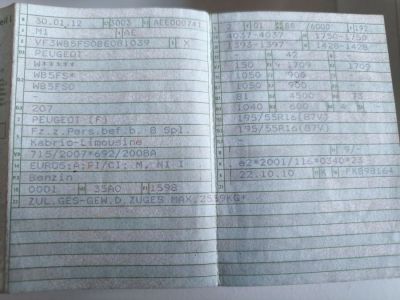 30.01.12 3003 AEE00074
M1 AE
VF3WB5FS0BE081039 X
PEUGEOT
W*****
WB5FS*
WB5FS0
-
207
PEUGEOT (F)
Fz.z.Pers.bef.b. 8 Spl.
Kabrio-Limousine
715/2007*692/2008A
EURO5;A;PI/CI; M, N1 I
Benzin
0001 35A0 1598
ZUL.GES-GEW.D.ZUGES MAX.2559KG*
01 88 6000 192
4037-4037 1750-1750
1393-1397 1428-1428
- 42
150 1709 1709
1050 900 -
1050 900 -
81 4500 73
1040 600 4 -
195/55R16(87V)
195/55R16(87V)
-
9/-
e2*2001/116*0340*23
22.10.10 K FK898164